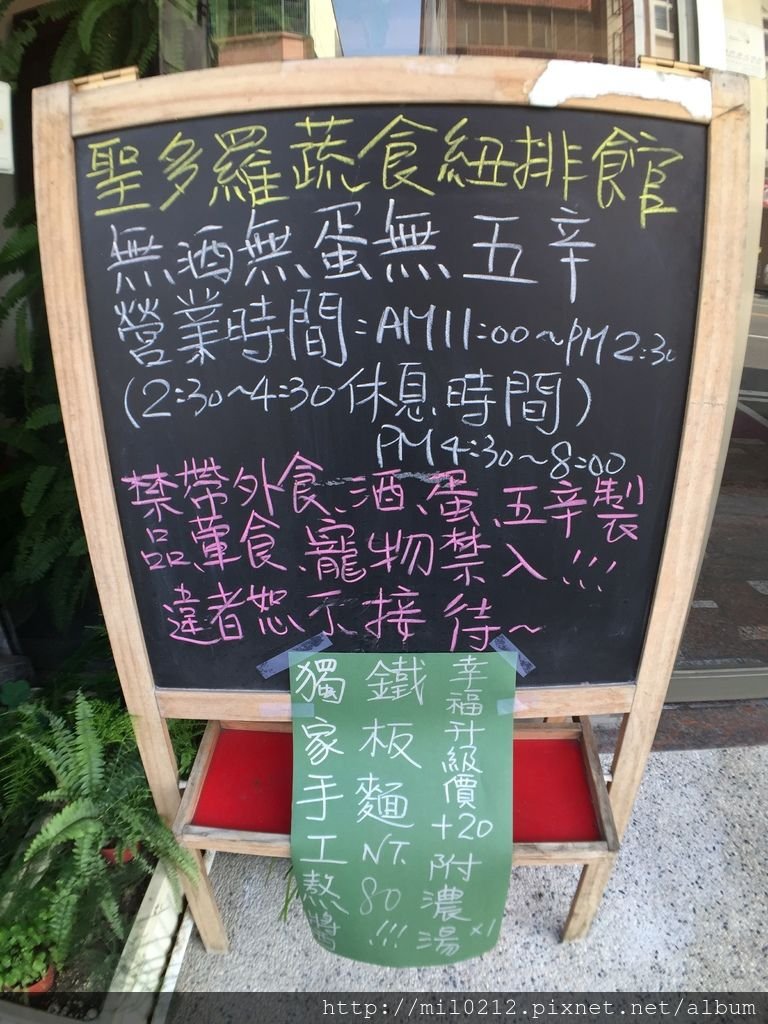 聖多羅蔬食紐排館
無酒無蛋無五辛
營業時間:AM11:00~PM2:30
(2:30~4:30休息時間)
PM4:30~8:00
禁帶外食、酒、蛋、五辛製
品葷食、寵物禁入!!!
違者恕不接待~
幸福升級價+20附濃湯x1
鐵板麵NT.80!!!
獨家手工熬醬
http://mil0212.pixnet.net/album